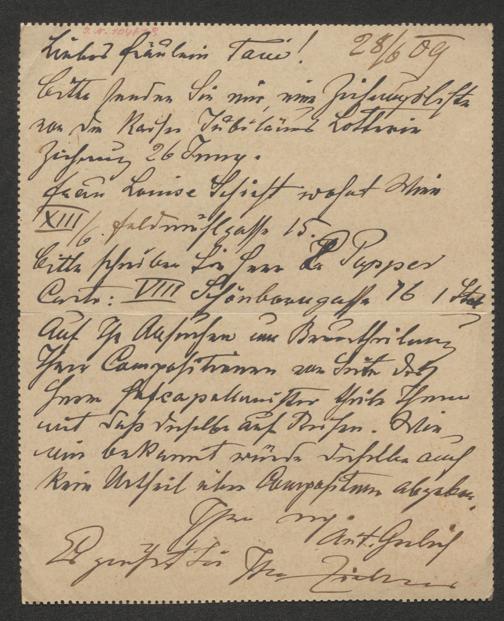 Liebes Fräulein Tani! 28/6 09
Bitte senden Sie mir eine Ziehungsliste
von der Kaiser Jubiläums Lotterie
Ziehung 26 Juny.
Frau Louise Schicht wohnt Wien
XIII/6. Feldmühlgasse 15.
Bitte schreiben Sie Herr Dr Popper
Carte: VIII Schönborngasse 16 1 Stock
Auf Ihr Ansuchen um Beurtheilung
Ihrer Compositionen von Seite des
Herrn Hofcapellmeister theile Ihnen
mit daß derselbe auf Reisen. Wie
mir bekannt würde derselbe auch
kein Urtheil über Composition abgeben.
Ihr
Es grüßt Sie Ihr